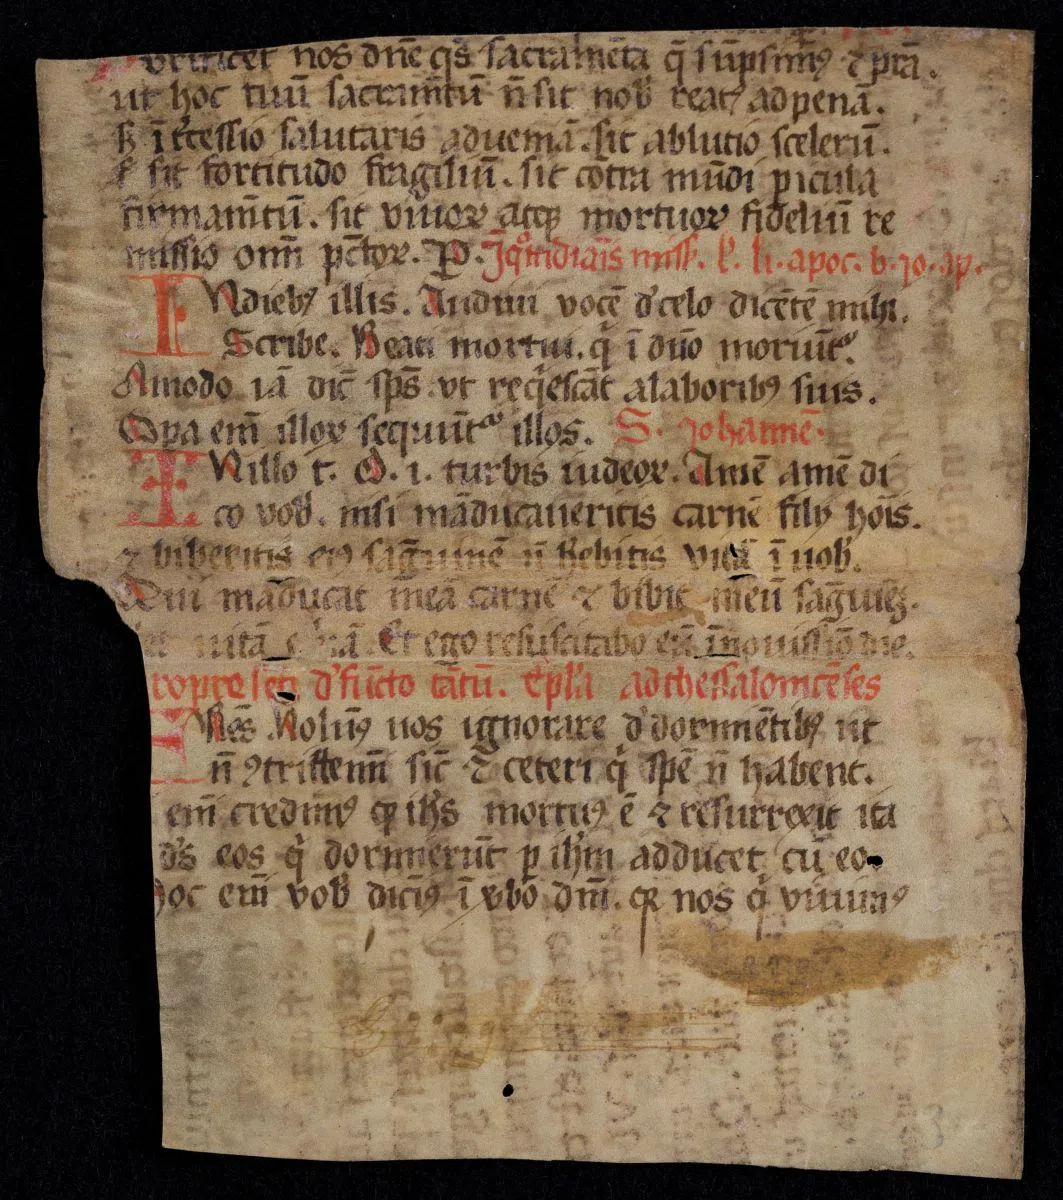 nos dn̄e q̄s sacram̄ēta q̄ sūpsimꝰ ⁊ p̄stā.
ut hoc tuū sacram̄tū n̄ sit nob̄ reatꝰ ad penā.
sꝫ ītˀcessio salutaris ad ueniā. sit ablutio scelerū.
sit fortitudo fragiliū. sit cōtra mūdi ꝑicula
firmam̄tū. sit viuoꝝ atqꝫ mortuoꝝ fideliū re
missio om̄i p̄ctoꝝ. P. In qͦtidiaīs miss. l. li. apoc. b. io. ap.
IN diebꝰ illis. Audiui vocē d̓ celo dicētē mihi.
Scribe. Beati mortui. q̇ ī dn̄o moriūtᷣ.
Amodo iā dic̄ sp̄s. vt req̇escāt a laboribꝰ suis.
Opa em̄ illoꝝ sequūtᷣ illos. S. Iohannē.
IN illo t. d. i. turbis iudeoꝝ. Amē amē di
co vob̄. nisi māducaueritis carnē filii hoīs.
⁊ biberitis eiꝰ sāguinē n̄ hēbitis vitā ī uob̄.
Qui māducat meā carnē ⁊ bibit meū sāguinēꝫ.
et uitā et̄nā. Et ego resuscitabo eū ī nouissīo die.
pro presenti d̓fūcto tātū. ep̄la ad thessalonicēses
Fr̄es. Nolumꝰ uos ignorare d̓ dormiētibꝰ ut
n̄ ꝯtristemī sic̄ ⁊ ceteri q̇ spē n̄ habent.
em̄ credimꝰ ꝙ ih̄s mortuꝰ ē ⁊ resurrexit ita
d̄s eos q̇ dormierūt ꝑ ih̄m adducet cū eo
hoc em̄ vob̄ dicimꝰ ī v̓bo dn̄i. qꝛ nos q̇ viuimꝰ